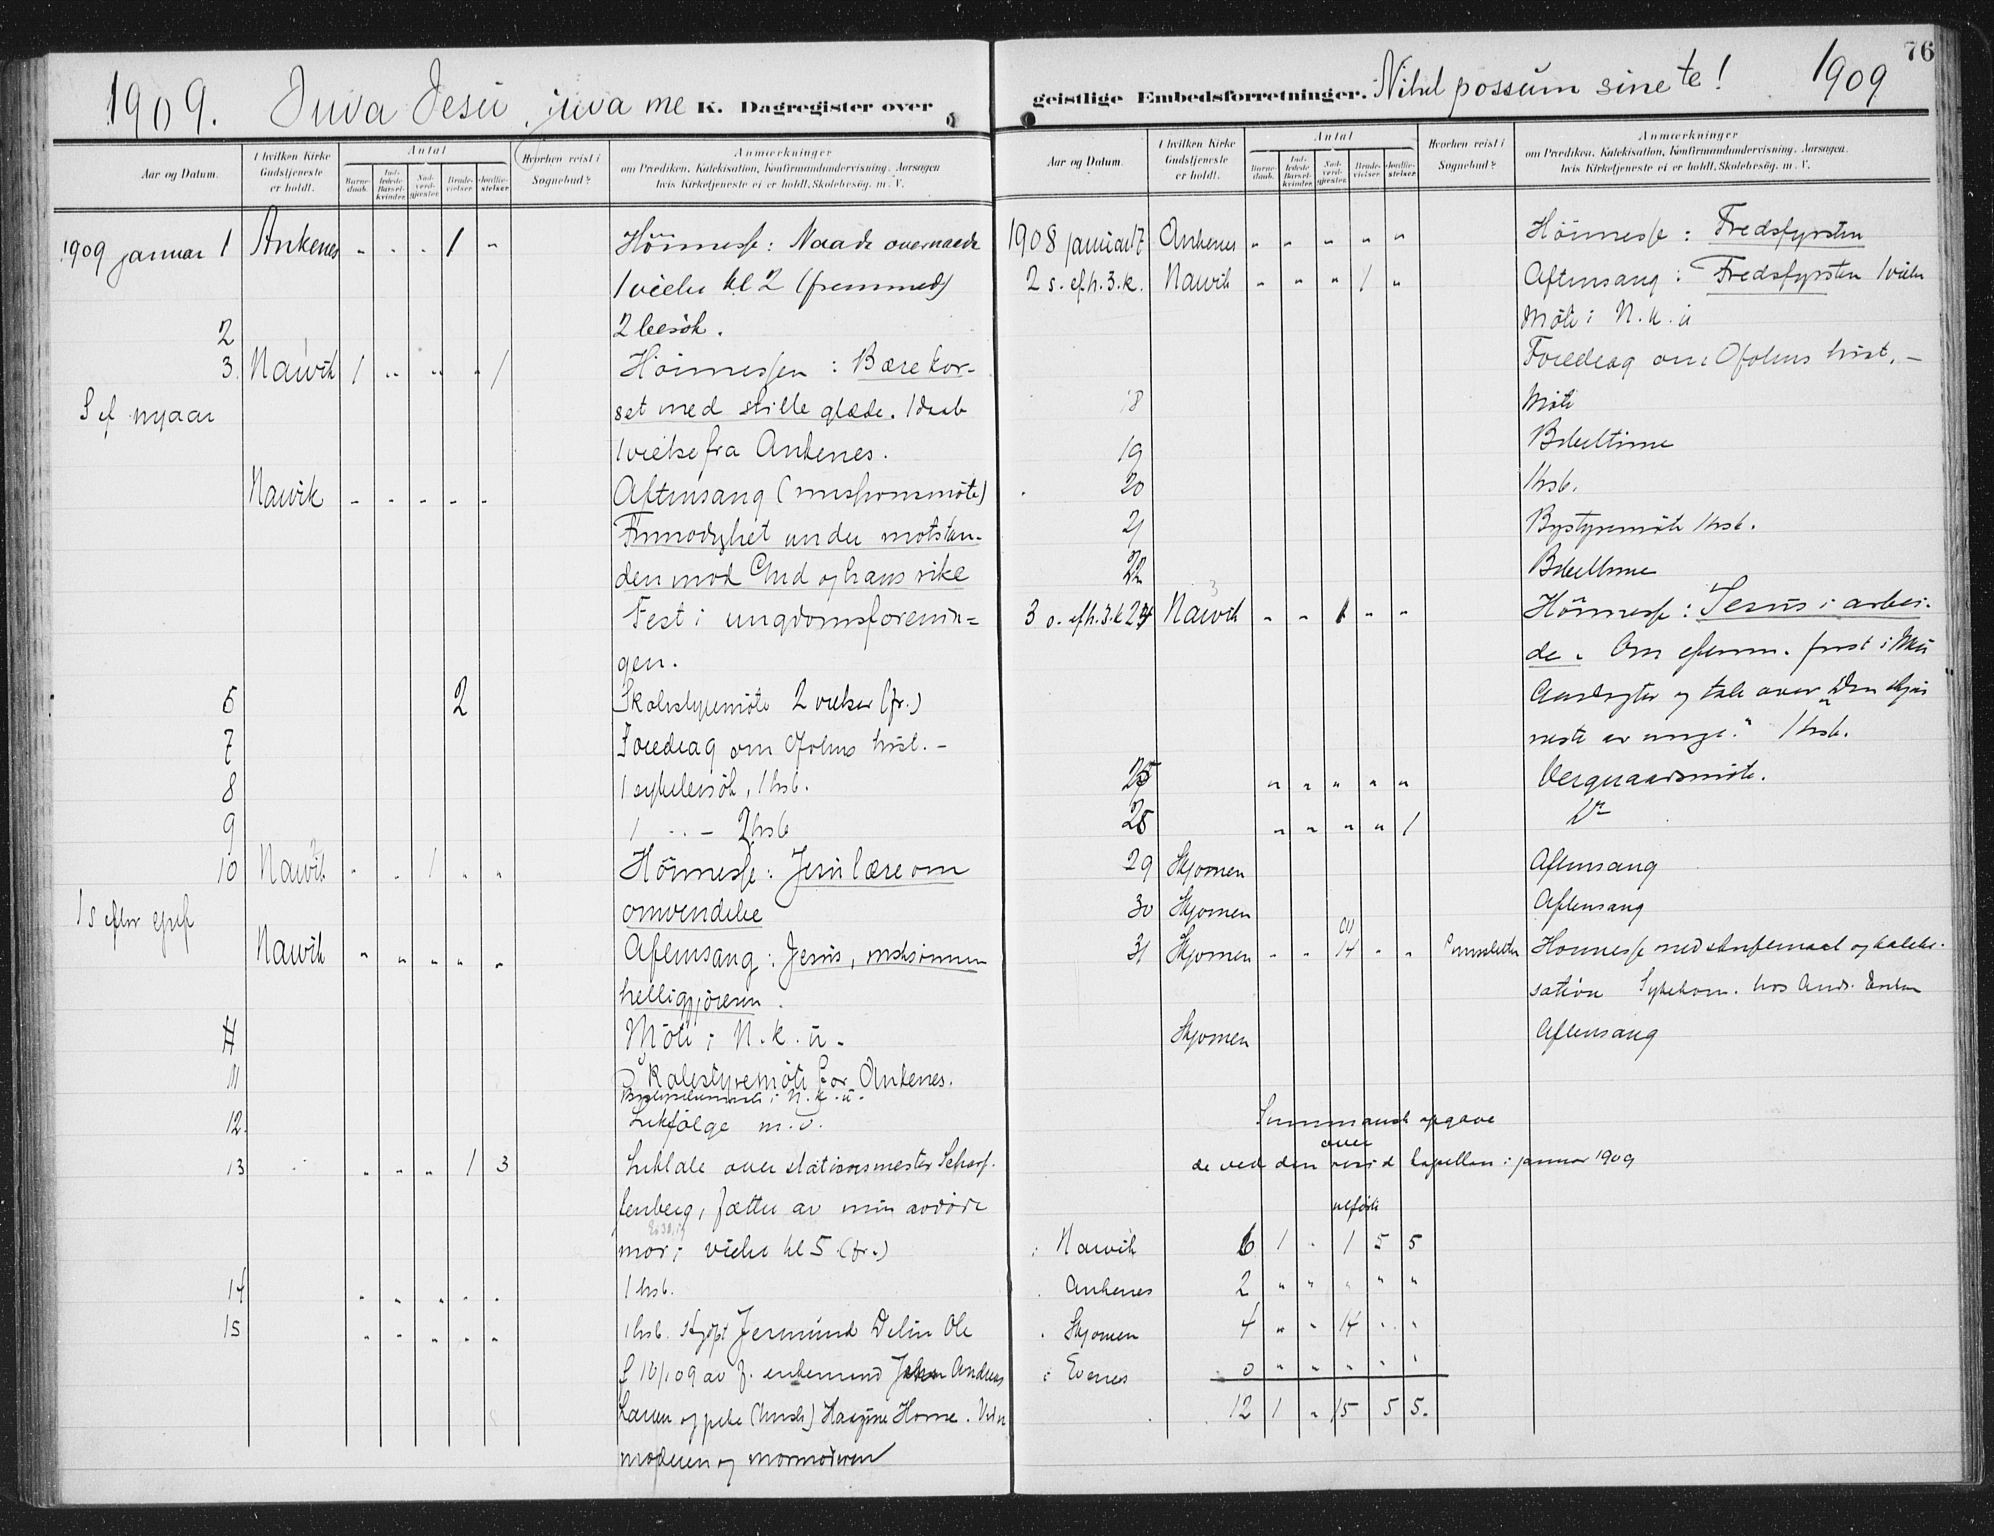 1909. Juva Jesu, juva me K. Dagregister over
Aar og Datum.
I hvilken Kirke Gudstjeneste er holdt.
Antal
Barnedaab.
Indledede Barselkvinder.
Nadverdgjester.
Brudevielser.
Jordfæstelser.
Hvorhen reist i Sognebud?
Anmærkninger
om Prædiken, Katekisation, Konfirmandundervisning, Aarsagen
hvis Kirketjeneste ei er holdt, Skolebesøg. m. V.
1909 januar 1 Ankenes " " " 1 " Höimesse: Naade overnaade
1 vielse kl 2 (fremmed)
2 2 besök.
3. Narvik 1 " " " 1 Höimessen: Bære kor-
S ef nyaar set med stille glæde. 1 daab
1 vielse fra Ankenes.
Narvik " " " " " Aftensang (missionsmöte)
Frimodighet under motstan-
den mod Gud og hans rike
Fest i ungdomsforenin-
gen.
5 2 Skolestyremöte 2 vielser (fr.)
7 Foredrag om Ofotens hist. -
8 1 sykebesök, 1 hsb.
9 1 " - 2 hsb
10 Narvik " " 1 " " Höimesse: Jesu lære om
1 s efter epif omvendelse
Narvik " " " " " Aftensang: Jesus,
helliggjöreren.
Möte i N. k. u.
11 Skolestyremöte for Ankenes.
i N. k. u.
12. Likfölge m. v.
13 " " " 1 3 Liktale over stationsmester Scharf-
fenberg, fætter av min avdöde
mor; vielse kl 5. (fr.)
14 " " " " " 1 hsb.
15 " " " " " 1 hsb. Ole
10/1 09 av f. enkemand Andreas
og pike Horne.
moderen og mormoderen
76
geistlige Embedsforretninger. Nihil possum sine te! 1909
Aar og Datum.
I hvilken Kirke Gudstjeneste er holdt.
Antal
Barnedaab.
Indledede Barselkvinder.
Nadverdgjester.
Brudevielser.
Jordfæstelser.
Hvorhen reist i Sognebud?
Anmærkninger
om Prædiken, Katekisation, Konfirmandundervisning, Aarsagen
hvis Kirketjeneste ei er holdt, Skolebesög. m. V.
1908 januar 17 Ankenes " " " " " Höimesse: Fredsfyrsten
2 s. ef h. 3. k. Narvik " " " 1 " Aftensang: Fredsfyrsten 1 vielse
Möte i N. k. u
Foredrag om Ofotens hist. -
18 Möte
19 Bibeltime
20 1 hsb.
21 Bystyremöte 1 hsb.
22 Bibeltime
3 s. ef h. 3. k 24 Narvik " " 1 " " Höimesse: Jesus i arbei-
de.
og tale over "Den
er unge." 1 hsb.
" " " " " Vergeraadsmöte.
" " " " 1 Do
29 Skjomen Aftensang
30 Skjomen Aftensang
31 Skjomen " " 14 " " Höimesse med skriftemaal og kateki-
sation Sykekom. hos And.
Skjomen Aftensang
Summarisk opgave
over
de ved den resid kapellan i januar 1909
utförte
i Narvik 6 1 " 1 5 5
" Ankenes 2 " " " " "
" Skjomen 4 " " 14 " "
i Evenes 0 " " " " "
12 1 " 15 5 5.